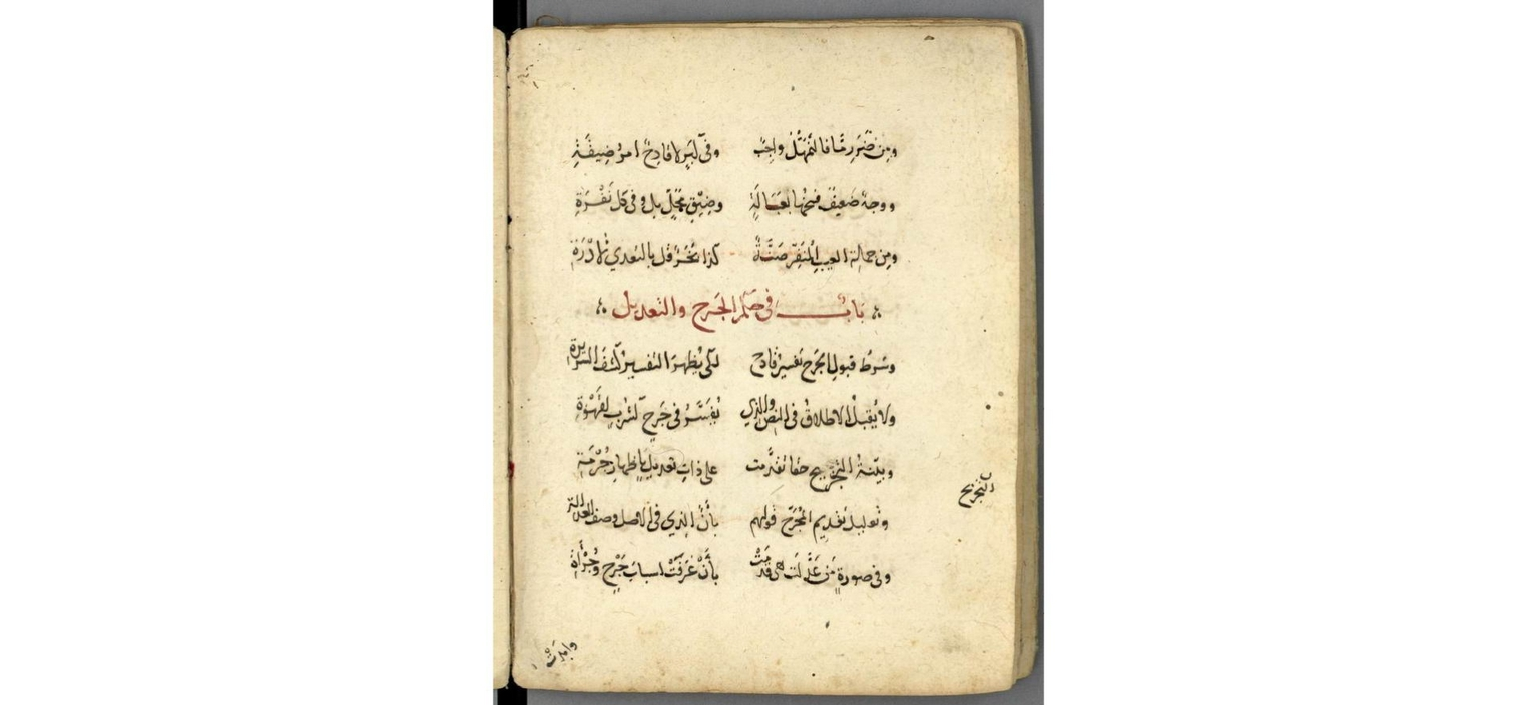 ومن ضرر ما فالتمهل واجب وفي لا قادح امر ضيفة
ووجه ضعيف وضيق محل بل وفي كل نفرة
ومن العيب المنفر كذا قل بالتعدي
باب في حكم الجرح والتعديل
وشرط قبول الجرح تفسير قادح لكي يظهر التفسير كشف السريرة
ولا يقبل الاطلاق في النص والذي يفسر في جرح كشرب لقهوة
وبينة التجريح حقا تقدمت على ذات تعديل باظهار جرمة
التجريح
وتعليل تقديم المجرح قولهم بأن الذي في الاصل وصف العدالة
وفي صورة من عدلت هي قدمت بأن عرفت اسباب جرح وجرأة
وابدت